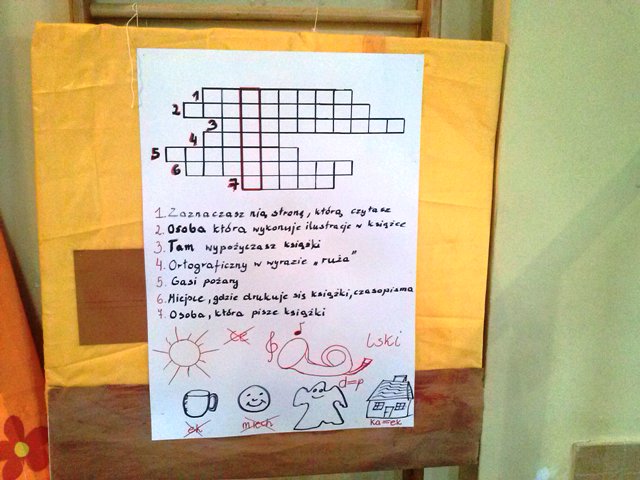 1
2
3
4
5
6
7
1. Zaznaczasz nią stronę, którą czytasz
2. Osoba która wykonuje ilustracje w książce
3. Tam wypożyczasz książki
4. Ortograficzny w wyrazie „ruża"
5. Gasi pożary
6. Miejsce, gdzie drukuje się książki, czasopisma
7. Osoba, która pisze książki
ce
lski
d=p
ek
miech
ka=ek